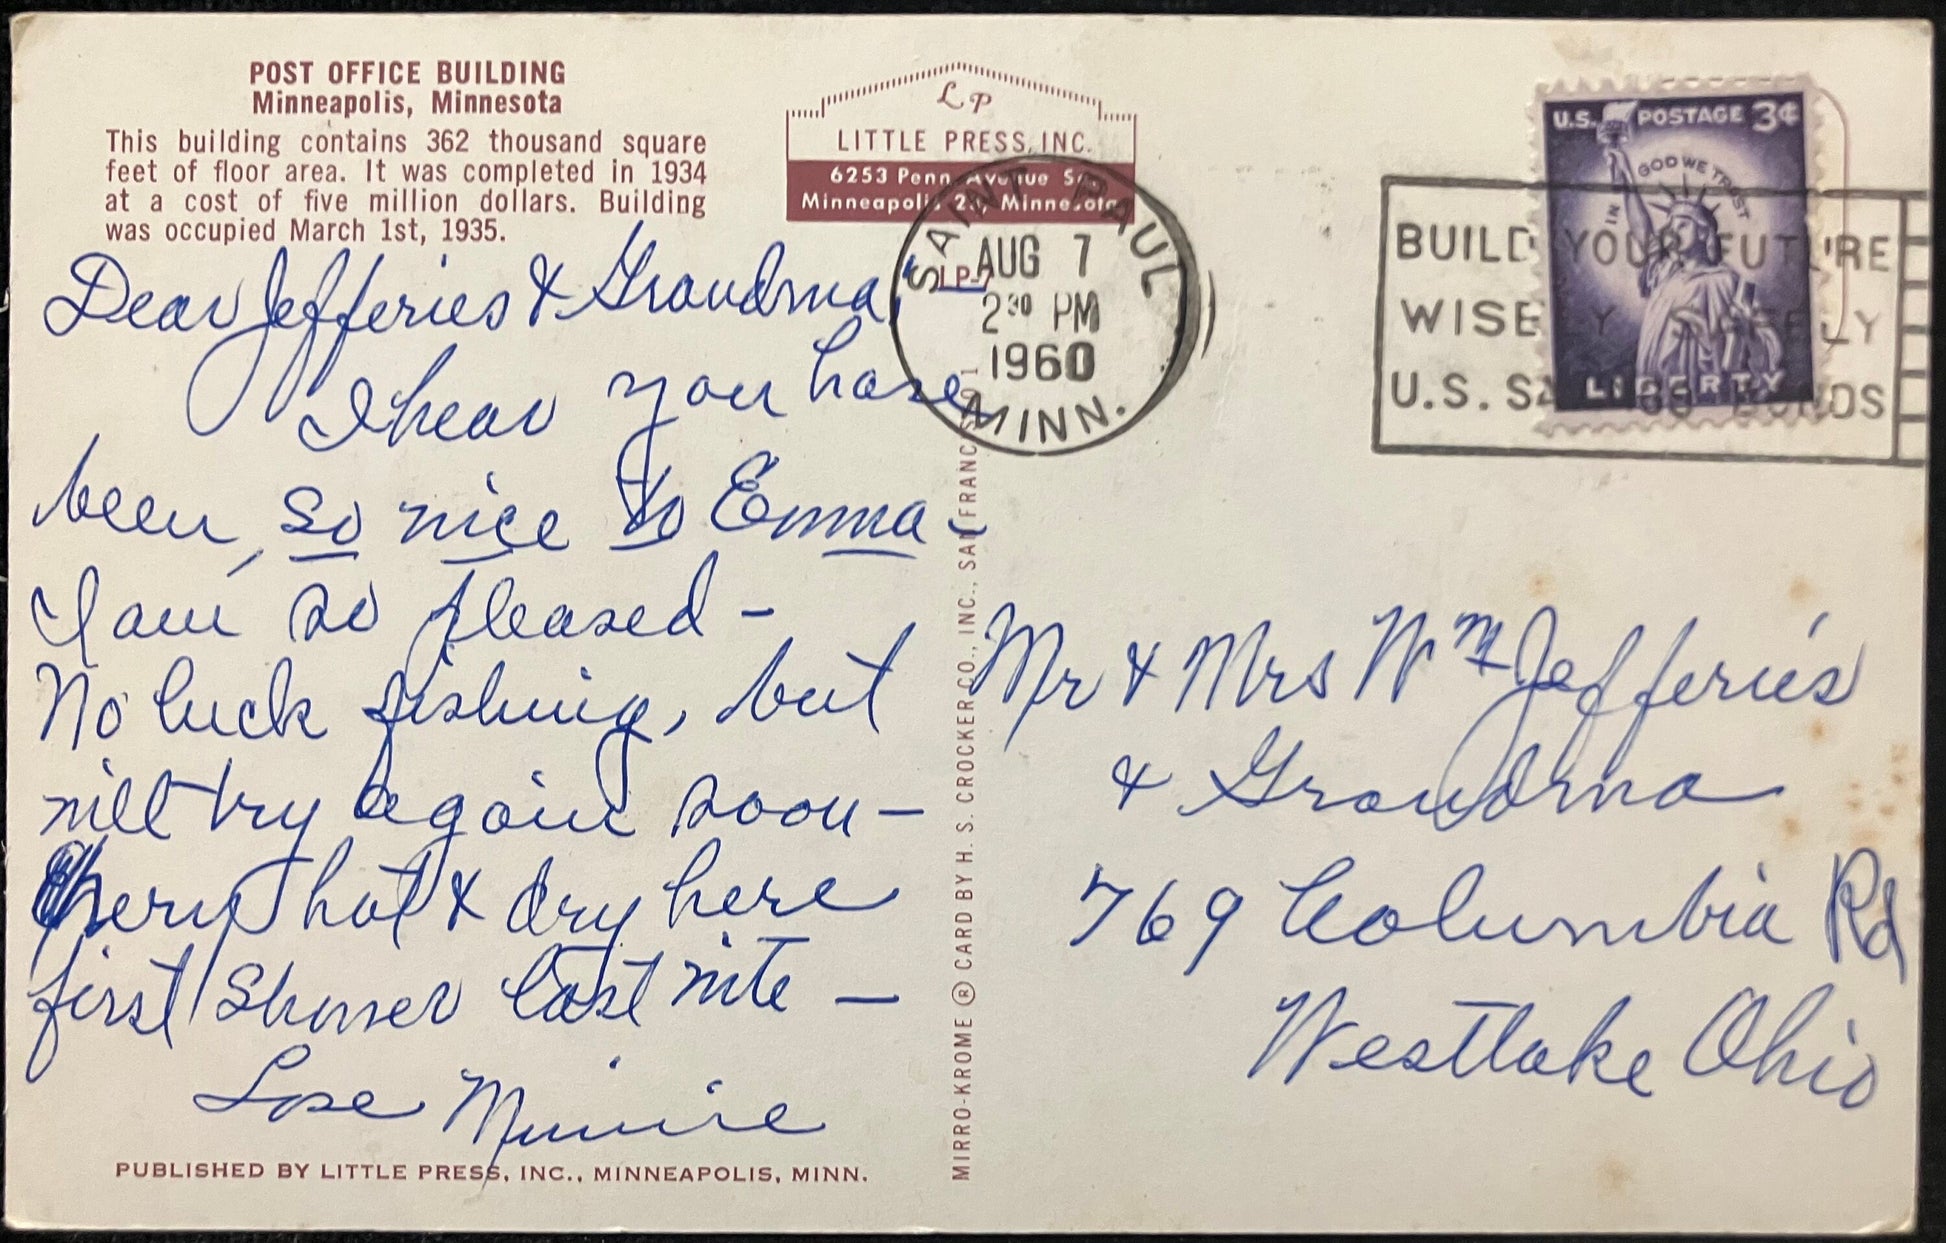 POST OFFICE BUILDING
Minneapolis, Minnesota
This building contains 362 thousand square
feet of floor area. It was completed in 1934
at a cost of five million dollars. Building
was occupied March 1st, 1935.
LP
LITTLE PRESS, INC.
6253 Penn Avenue So.
Minneapolis 23, Minnesota
LP-7
SAINT PAUL
AUG 7
2 30 PM
1960
MINN.
U.S. POSTAGE 3¢
IN GOD WE TRUST
LIBERTY
BUILD YOUR FUTURE
WISELY SAFELY
U.S. SAVINGS BONDS
Dear Jefferies & Grandma,
I hear you have
been, so nice to Emma -
I am so pleased -
No luck fishing, but
will try again soon -
very hot & dry here
first shower last nite -
Love Minnie
PUBLISHED BY LITTLE PRESS, INC., MINNEAPOLIS, MINN.
MIRRO-KROME ® CARD BY H. S. CROCKER CO., INC., SAN FRANCISCO 1
Mr & Mrs Wm Jefferies
& Grandma
769 Columbia Rd
Westlake Ohio